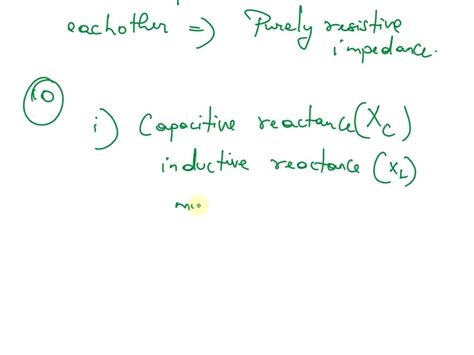 eachother ⇒ Purely resistive
impedance.
10
i) Capacitive reactance (Xc)
inductive reactance (XL)